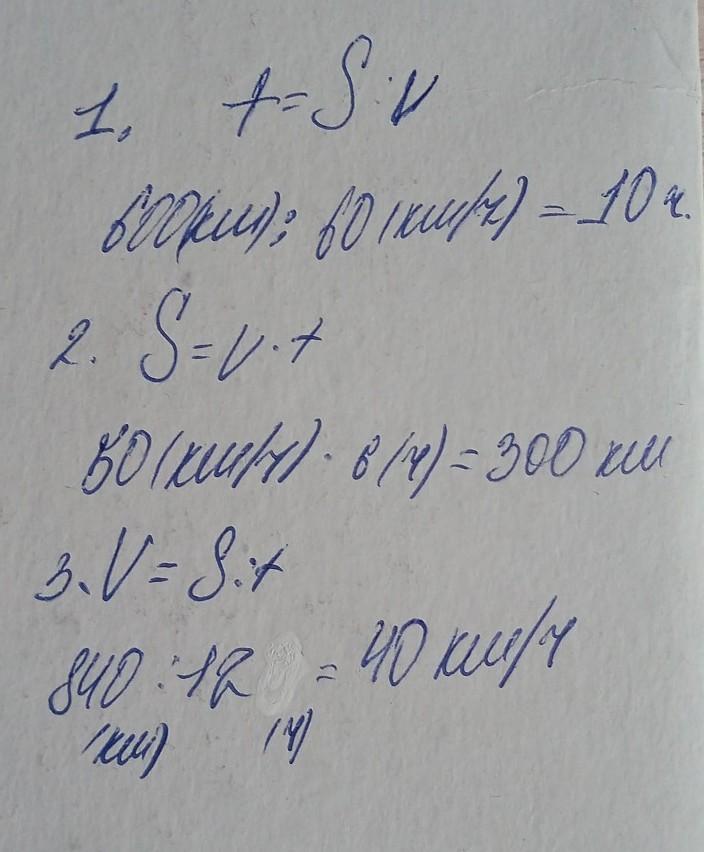 1. t = S : V
600(км) : 60 (км/ч) = 10 ч.
2. S = V · t
50 (км/ч) · 6 (ч) = 300 км
3. V = S : t
840 : 12 = 40 км/ч
(км) (ч)